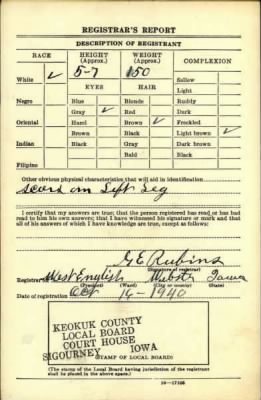 REGISTRAR'S REPORT
DESCRIPTION OF REGISTRANT
RACE HEIGHT (Approx.) WEIGHT (Approx.) COMPLEXION
White ✓ 5-7 150 Sallow
EYES HAIR Light
Negro Blue Blonde Ruddy
Gray ✓ Red Dark
Oriental Hazel Brown ✓ Freckled
Brown Black Light brown ✓
Indian Black Gray Dark brown
Bald Black
Filipino
Other obvious physical characteristics that will aid in identification
Scars on Left Leg
I certify that my answers are true; that the person registered has read or has had
read to him his own answers; that I have witnessed his signature or mark and that
all of his answers of which I have knowledge are true, except as follows:
G E Rubins
(Signature of registrar)
Registrar for West English Webster Iowa
(Precinct) (Ward) (City or county) (State)
Date of registration Oct 16 - 1940
KEOKUK COUNTY
LOCAL BOARD
COURT HOUSE
SIGOURNEY IOWA
(STAMP OF LOCAL BOARD)
(The stamp of the Local Board having jurisdiction of the registrant
shall be placed in the above space.)